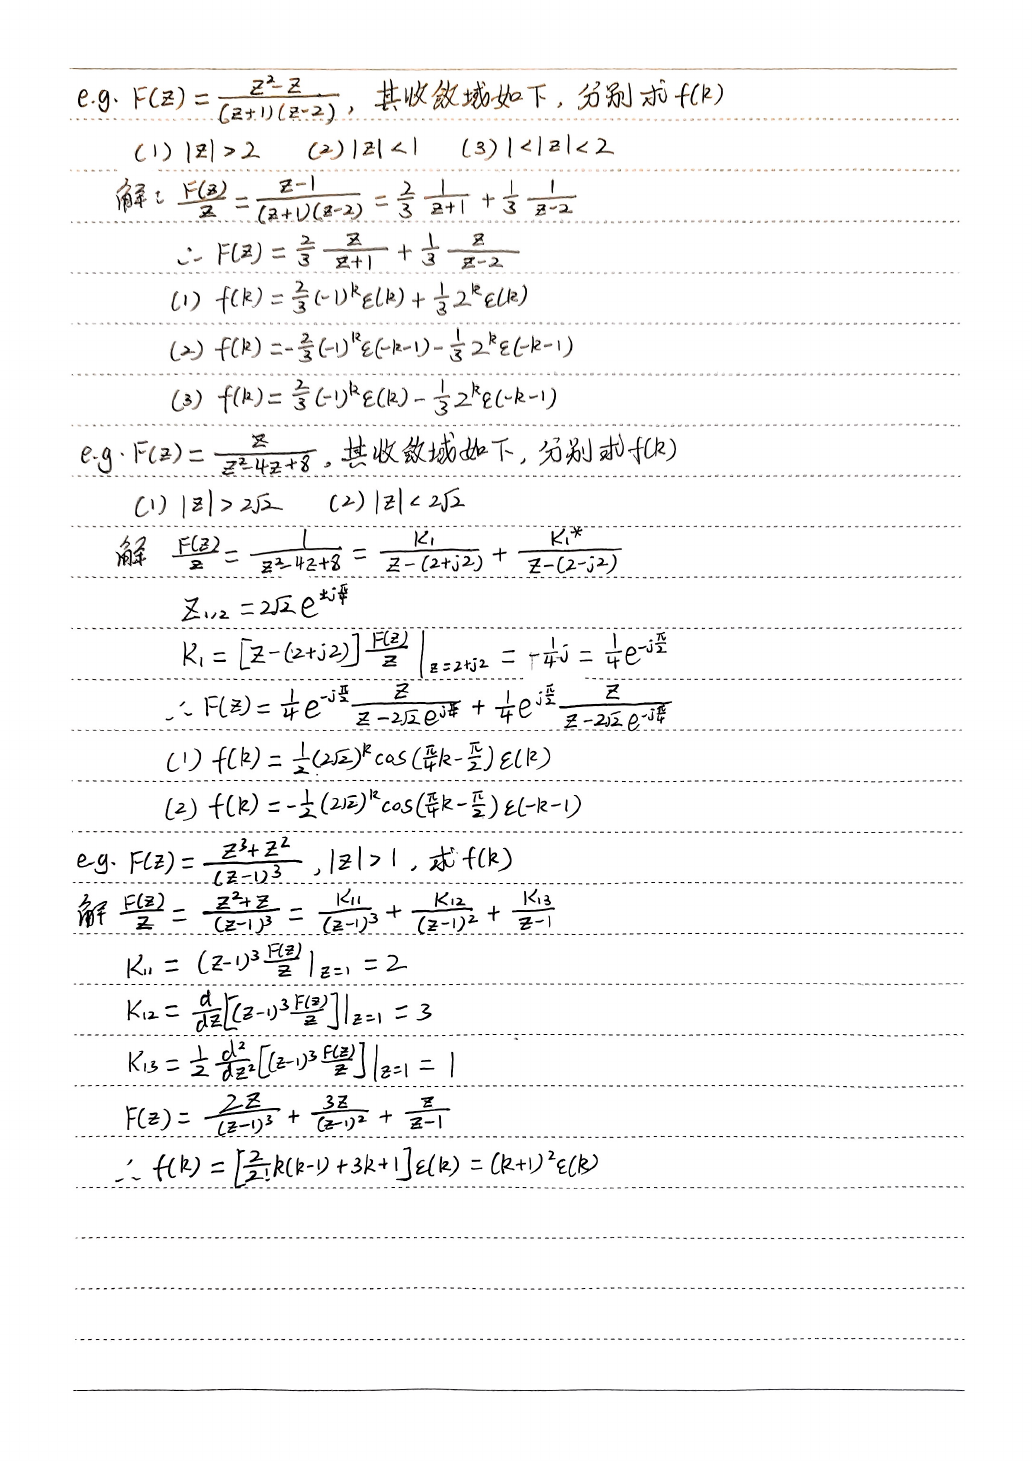 e.g. F(z) = (z²-z)/((z+1)(z-2)), 其收敛域如下, 分别求f(k)
(1) |z|>2 (2) |z|<1 (3) 1<|z|<2
解: F(z)/z = (z-1)/((z+1)(z-2)) = 2/3 1/(z+1) + 1/3 1/(z-2)
∴ F(z) = 2/3 z/(z+1) + 1/3 z/(z-2)
(1) f(k) = 2/3 (-1)^k ε(k) + 1/3 2^k ε(k)
(2) f(k) = -2/3 (-1)^k ε(-k-1) - 1/3 2^k ε(-k-1)
(3) f(k) = 2/3 (-1)^k ε(k) - 1/3 2^k ε(-k-1)
e.g. F(z) = z/(z²-4z+8), 其收敛域如下, 分别求f(k)
(1) |z|>2√2 (2) |z|<2√2
解 F(z)/z = 1/(z²-4z+8) = K₁/(z-(2+j2)) + K₁*/(z-(2-j2))
z₁,₂ = 2√2 e^(±jπ/4)
K₁ = [z-(2+j2)] F(z)/z |z=2+j2 = -1/4 j = 1/4 e^(-jπ/2)
∴ F(z) = 1/4 e^(-jπ/2) z/(z-2√2 e^(jπ/4)) + 1/4 e^(jπ/2) z/(z-2√2 e^(-jπ/4))
(1) f(k) = 1/2 (2√2)^k cos(π/4 k - π/2) ε(k)
(2) f(k) = -1/2 (2√2)^k cos(π/4 k - π/2) ε(-k-1)
e.g. F(z) = (z³+z²)/(z-1)³, |z|>1, 求f(k)
解 F(z)/z = (z²+z)/(z-1)³ = K₁₁/(z-1)³ + K₁₂/(z-1)² + K₁₃/(z-1)
K₁₁ = (z-1)³ F(z)/z |z=1 = 2
K₁₂ = d/dz [(z-1)³ F(z)/z] |z=1 = 3
K₁₃ = 1/2 d²/dz² [(z-1)³ F(z)/z] |z=1 = 1
F(z) = 2z/(z-1)³ + 3z/(z-1)² + z/(z-1)
∴ f(k) = [2/2! k(k-1)+3k+1] ε(k) = (k+1)² ε(k)